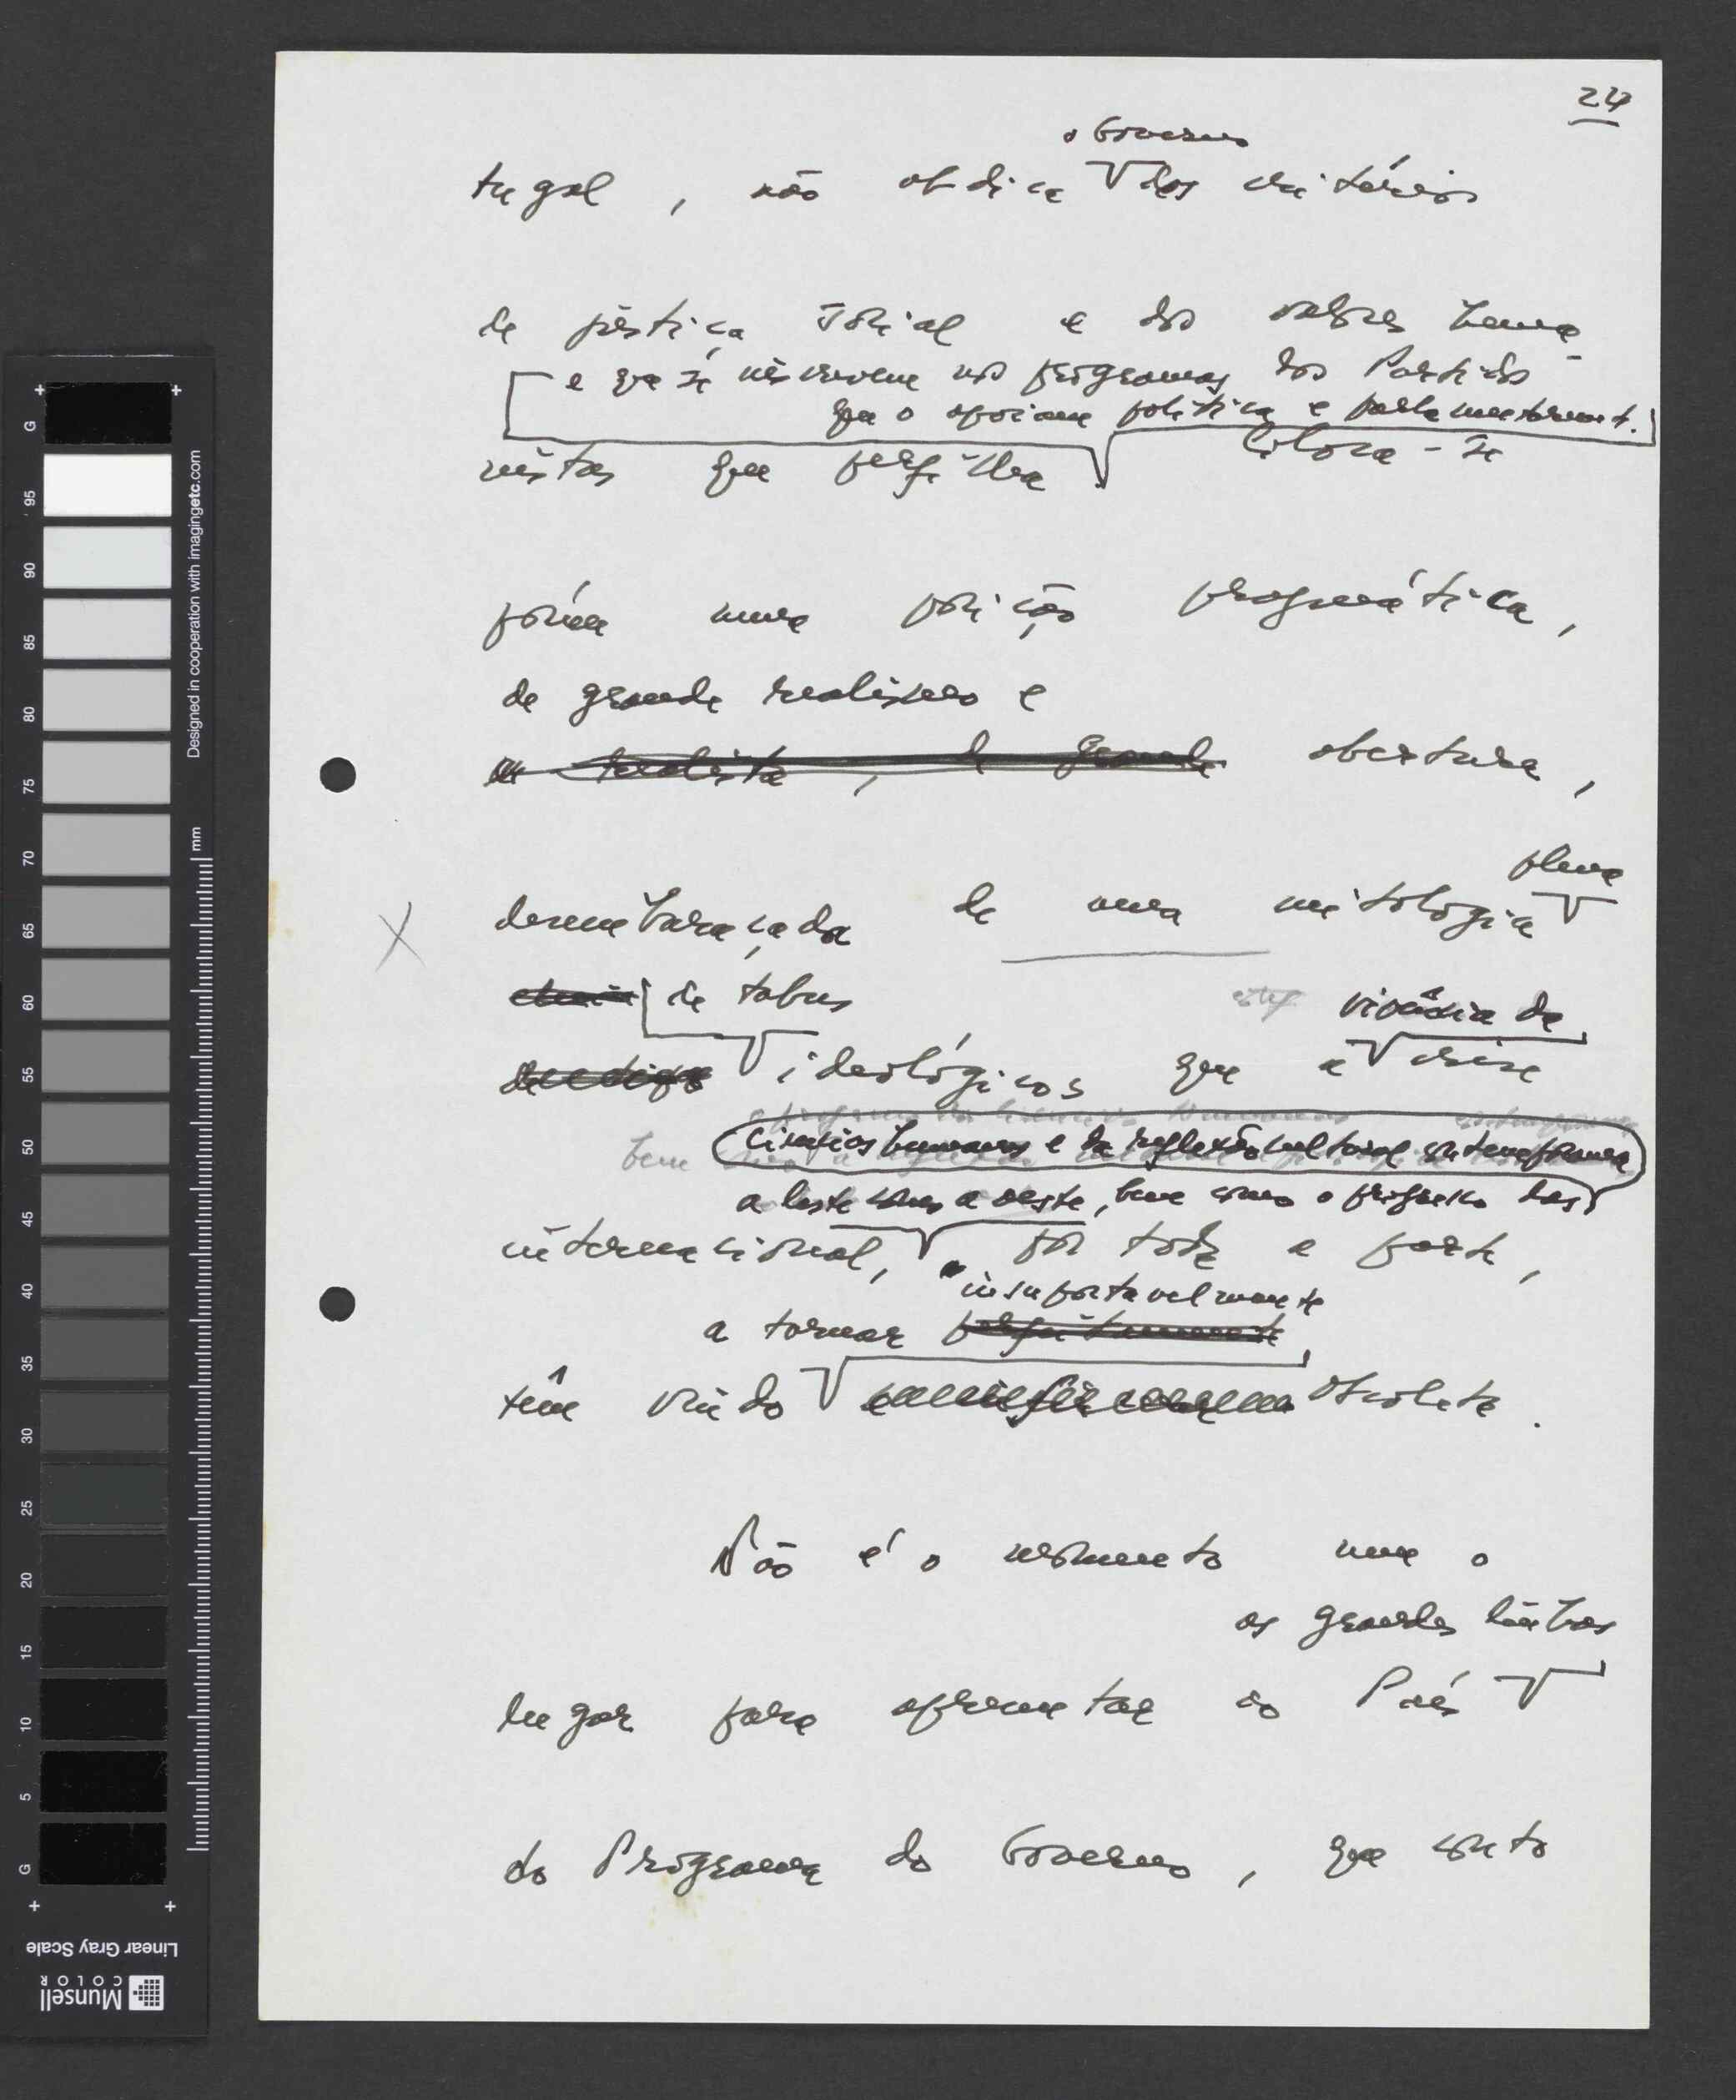 24
o Governo
tugal, não abdica dos critérios
de justiça social e dos valores huma-
e que se inscrevem nos programas dos Partidos
que o apoiam política e parlamentarment.
nistas que perfilha
Coloca-se
porém numa posição pragmática,
de grande realismo e
realista, de grande abertura,
plena
desembaraçada de uma mitologia
de tabus
vivência da
ideológicos que a crise
bem
ciências humanas e da reflexão cultural contemporânea
a leste como a oeste, bem como o progresso das
internacional, por toda a parte,
insuportavelmente
a tornar
têm vindo obsoleta.
Não é o momento nem o
as grandes linhas
lugar para apresentar ao País
do Programa do Governo, que conto
G
95
90
85
80
75
70
65
60
55
50
45
40
35
30
25
20
15
10
5
G
mm
Designed in cooperation with imagingetc.com
Linear Gray Scale
Munsell
COLOR